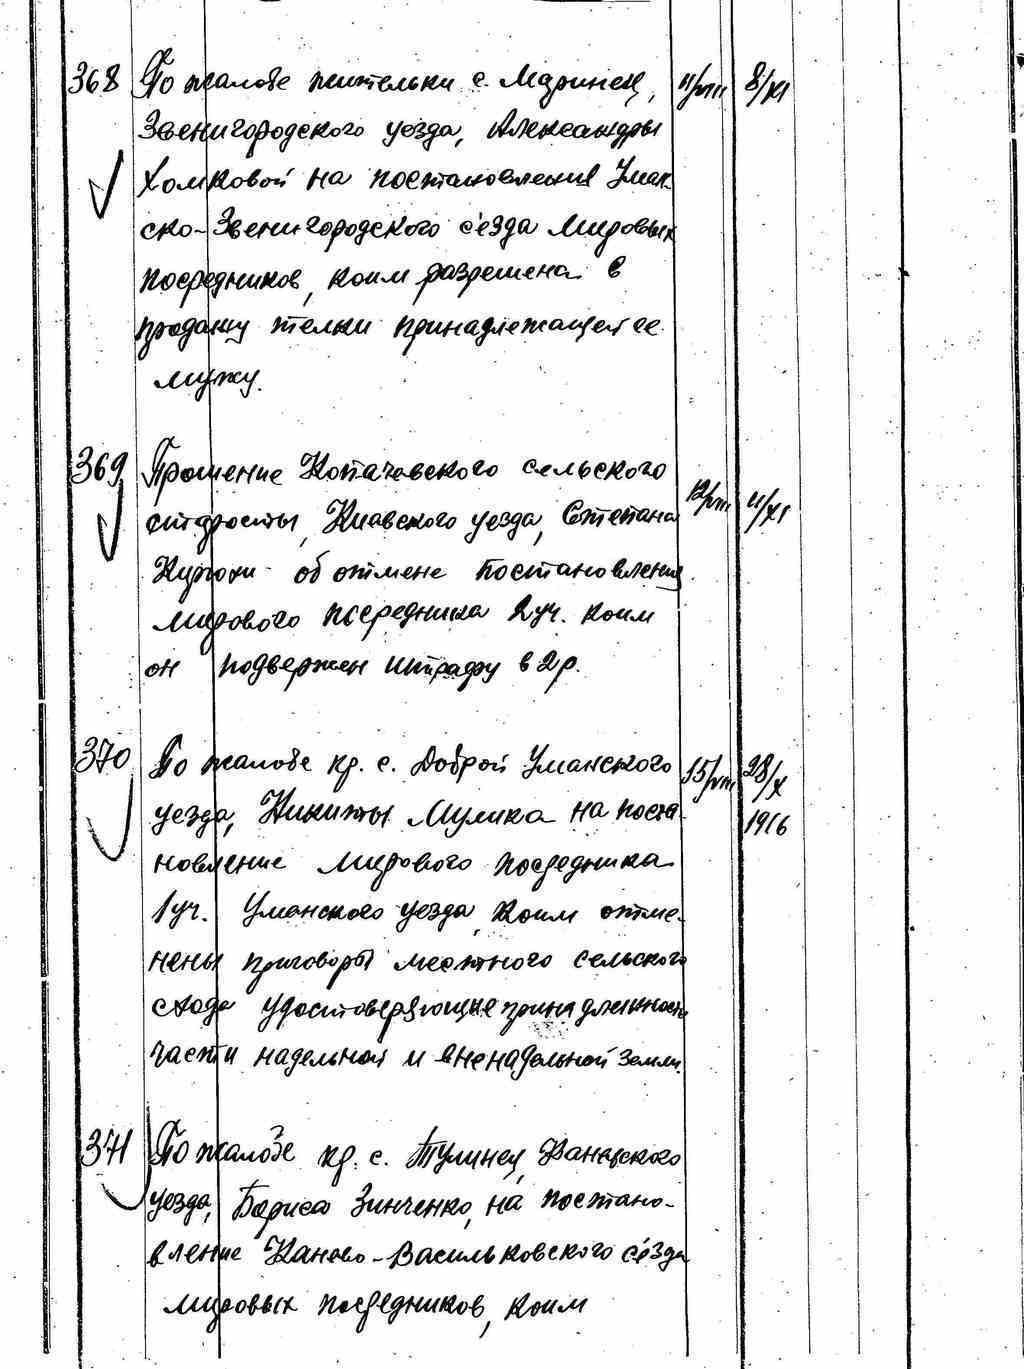 368 По жалобе жительки с. Моринец, 11/VIII 8/XI
Звенигородского уезда, Александры
Хомковой на постановления Уман-
ско-Звенигородского с'езда Мировых
посредников, коим разрешена в
продажу телки принадлежащей ее
мужу.
369 Прошение Копачевского сельского
старосты, Киевского уезда, Степана 12/VIII 11/XI
об отмене постановления
мирового посредника 2 уч. коим
он подвержен штрафу в 2 р.
370 По жалобе кр. с. Доброй Уманского 15/VIII 28/X
уезда, Никиты Мулика на поста- 1916
новление мирового посредника
1 уч. Уманского уезда, коим отме-
нены приговоры местного сельского
схода удостоверяющие принадлежность
части надельной и вненадельной земли.
371 По жалобе кр. с. Тулинец, Каневского
уезда, Бориса Зинченко, на постано-
вление Канево-Васильковского с'езда
мировых посредников, коим